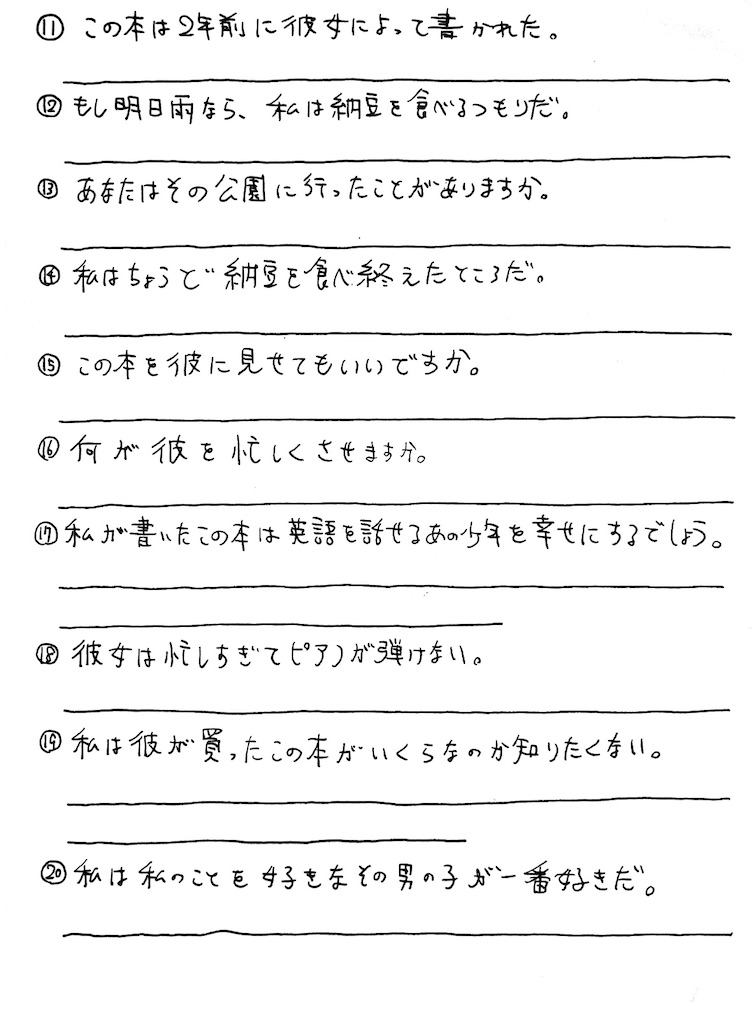 ⑪ この本は2年前に彼女によって書かれた。
⑫ もし明日雨なら、私は納豆を食べるつもりだ。
⑬ あなたはその公園に行ったことがありますか。
⑭ 私はちょうど納豆を食べ終えたところだ。
⑮ この本を彼に見せてもいいですか。
⑯ 何が彼を忙しくさせますか。
⑰ 私が書いたこの本は英語を話せるあの少年を幸せにするでしょう。
⑱ 彼女は忙しすぎてピアノが弾けない。
⑲ 私は彼が買ったこの本がいくらなのか知りたくない。
⑳ 私は私のことを好きなその男の子が一番好きだ。